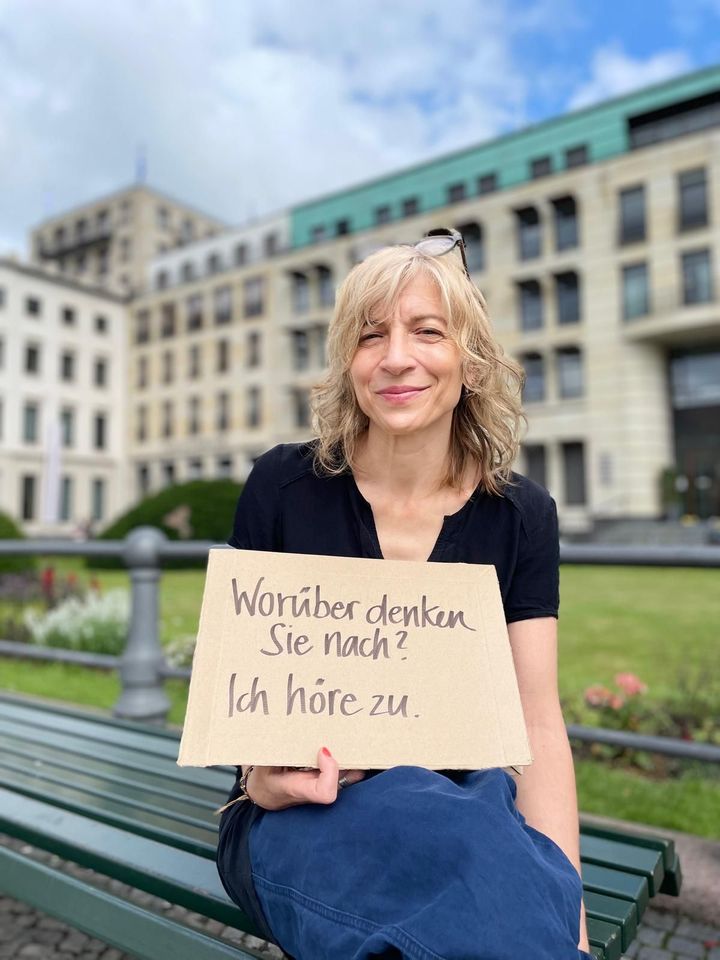 Worüber denken
Sie nach?
Ich höre zu.